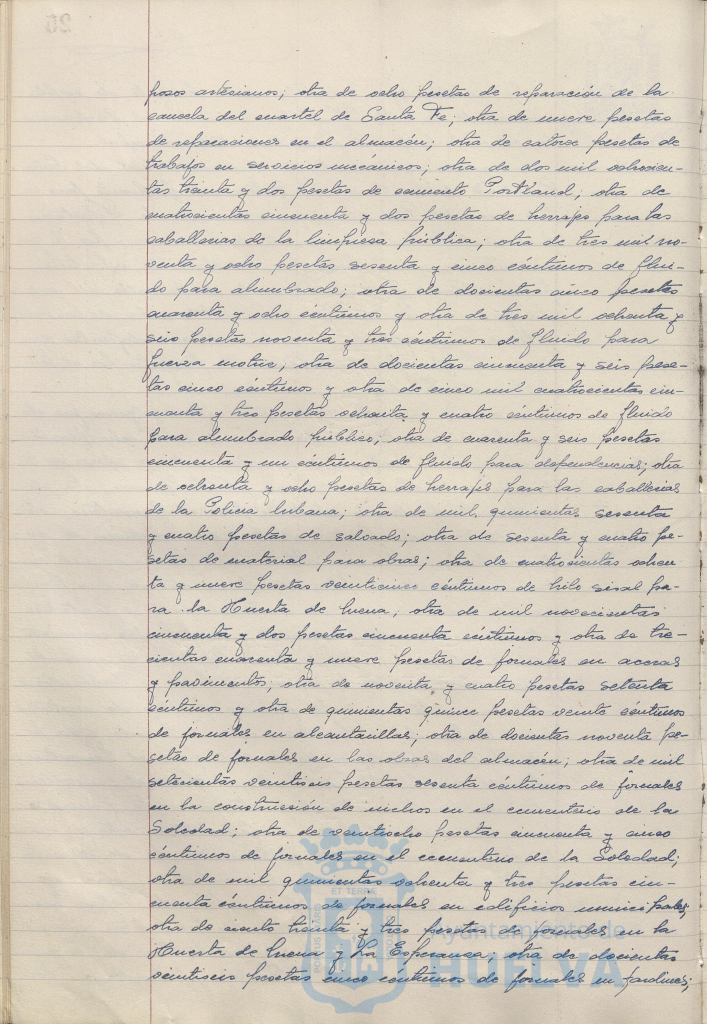 pozos artesianos; otra de ocho pesetas de reparación de la
cancela del cuartel de Santa Fe; otra de nueve pesetas
de reparaciones en el almacén; otra de catorce pesetas de
trabajos en servicios mecánicos; otra de dos mil ochocien-
tas treinta y dos pesetas de cemento Portland; otra de
cuatrocientas cincuenta y dos pesetas de herrajes para las
caballerias de la limpieza pública; otra de tres mil no-
venta y ocho pesetas sesenta y cinco céntimos de flui-
do para alumbrado; otra de docientas cinco pesetas
cuarenta y ocho céntimos y otra de tres mil ochenta y
seis pesetas noventa y tres céntimos de fluido para
fuerza motriz; otra de docientas cincuenta y seis pese-
tas cinco céntimos y otra de cinco mil cuatrocientas cin-
cuenta y tres pesetas ochenta y cuatro céntimos de fluido
para alumbrado público; otra de cuarenta y seis pesetas
cincuenta y un céntimos de fluido para dependencias; otra
de ochenta y ocho pesetas de herrajes para las caballerias
de la Policia Urbana; otra de mil quinientas sesenta
y cuatro pesetas de salvado; otra de sesenta y cuatro pe-
setas de material para obras; otra de cuatrocientas ochen-
ta y nueve pesetas veinticinco céntimos de hilo sisal pa-
ra la Huerta de Mena; otra de mil novecientas
cincuenta y dos pesetas cincuenta céntimos y otra de tre-
cientas cuarenta y nueve pesetas de jornales en aceras
y pavimentos; otra de noventa y cuatro pesetas setenta
céntimos y otra de quinientas quince pesetas veinte céntimos
de jornales en alcantarillas; otra de docientas noventa pe-
setas de jornales en las obras del almacén; otra de mil
setecientas veintiseis pesetas sesenta céntimos de jornales
en la construcción de nichos en el cementerio de la
Soledad; otra de veintiocho pesetas cincuenta y cinco
céntimos de jornales en el cementerio de la Soledad;
otra de mil quinientas ochenta y tres pesetas cin-
cuenta céntimos de jornales en edificios municipales;
otra de ciento treinta y tres pesetas de jornales en la
Huerta de Mena y La Esperanza; otra de docientas
veintiseis pesetas cinco céntimos de jornales en jardines;
Ayuntamiento de
HUELVA